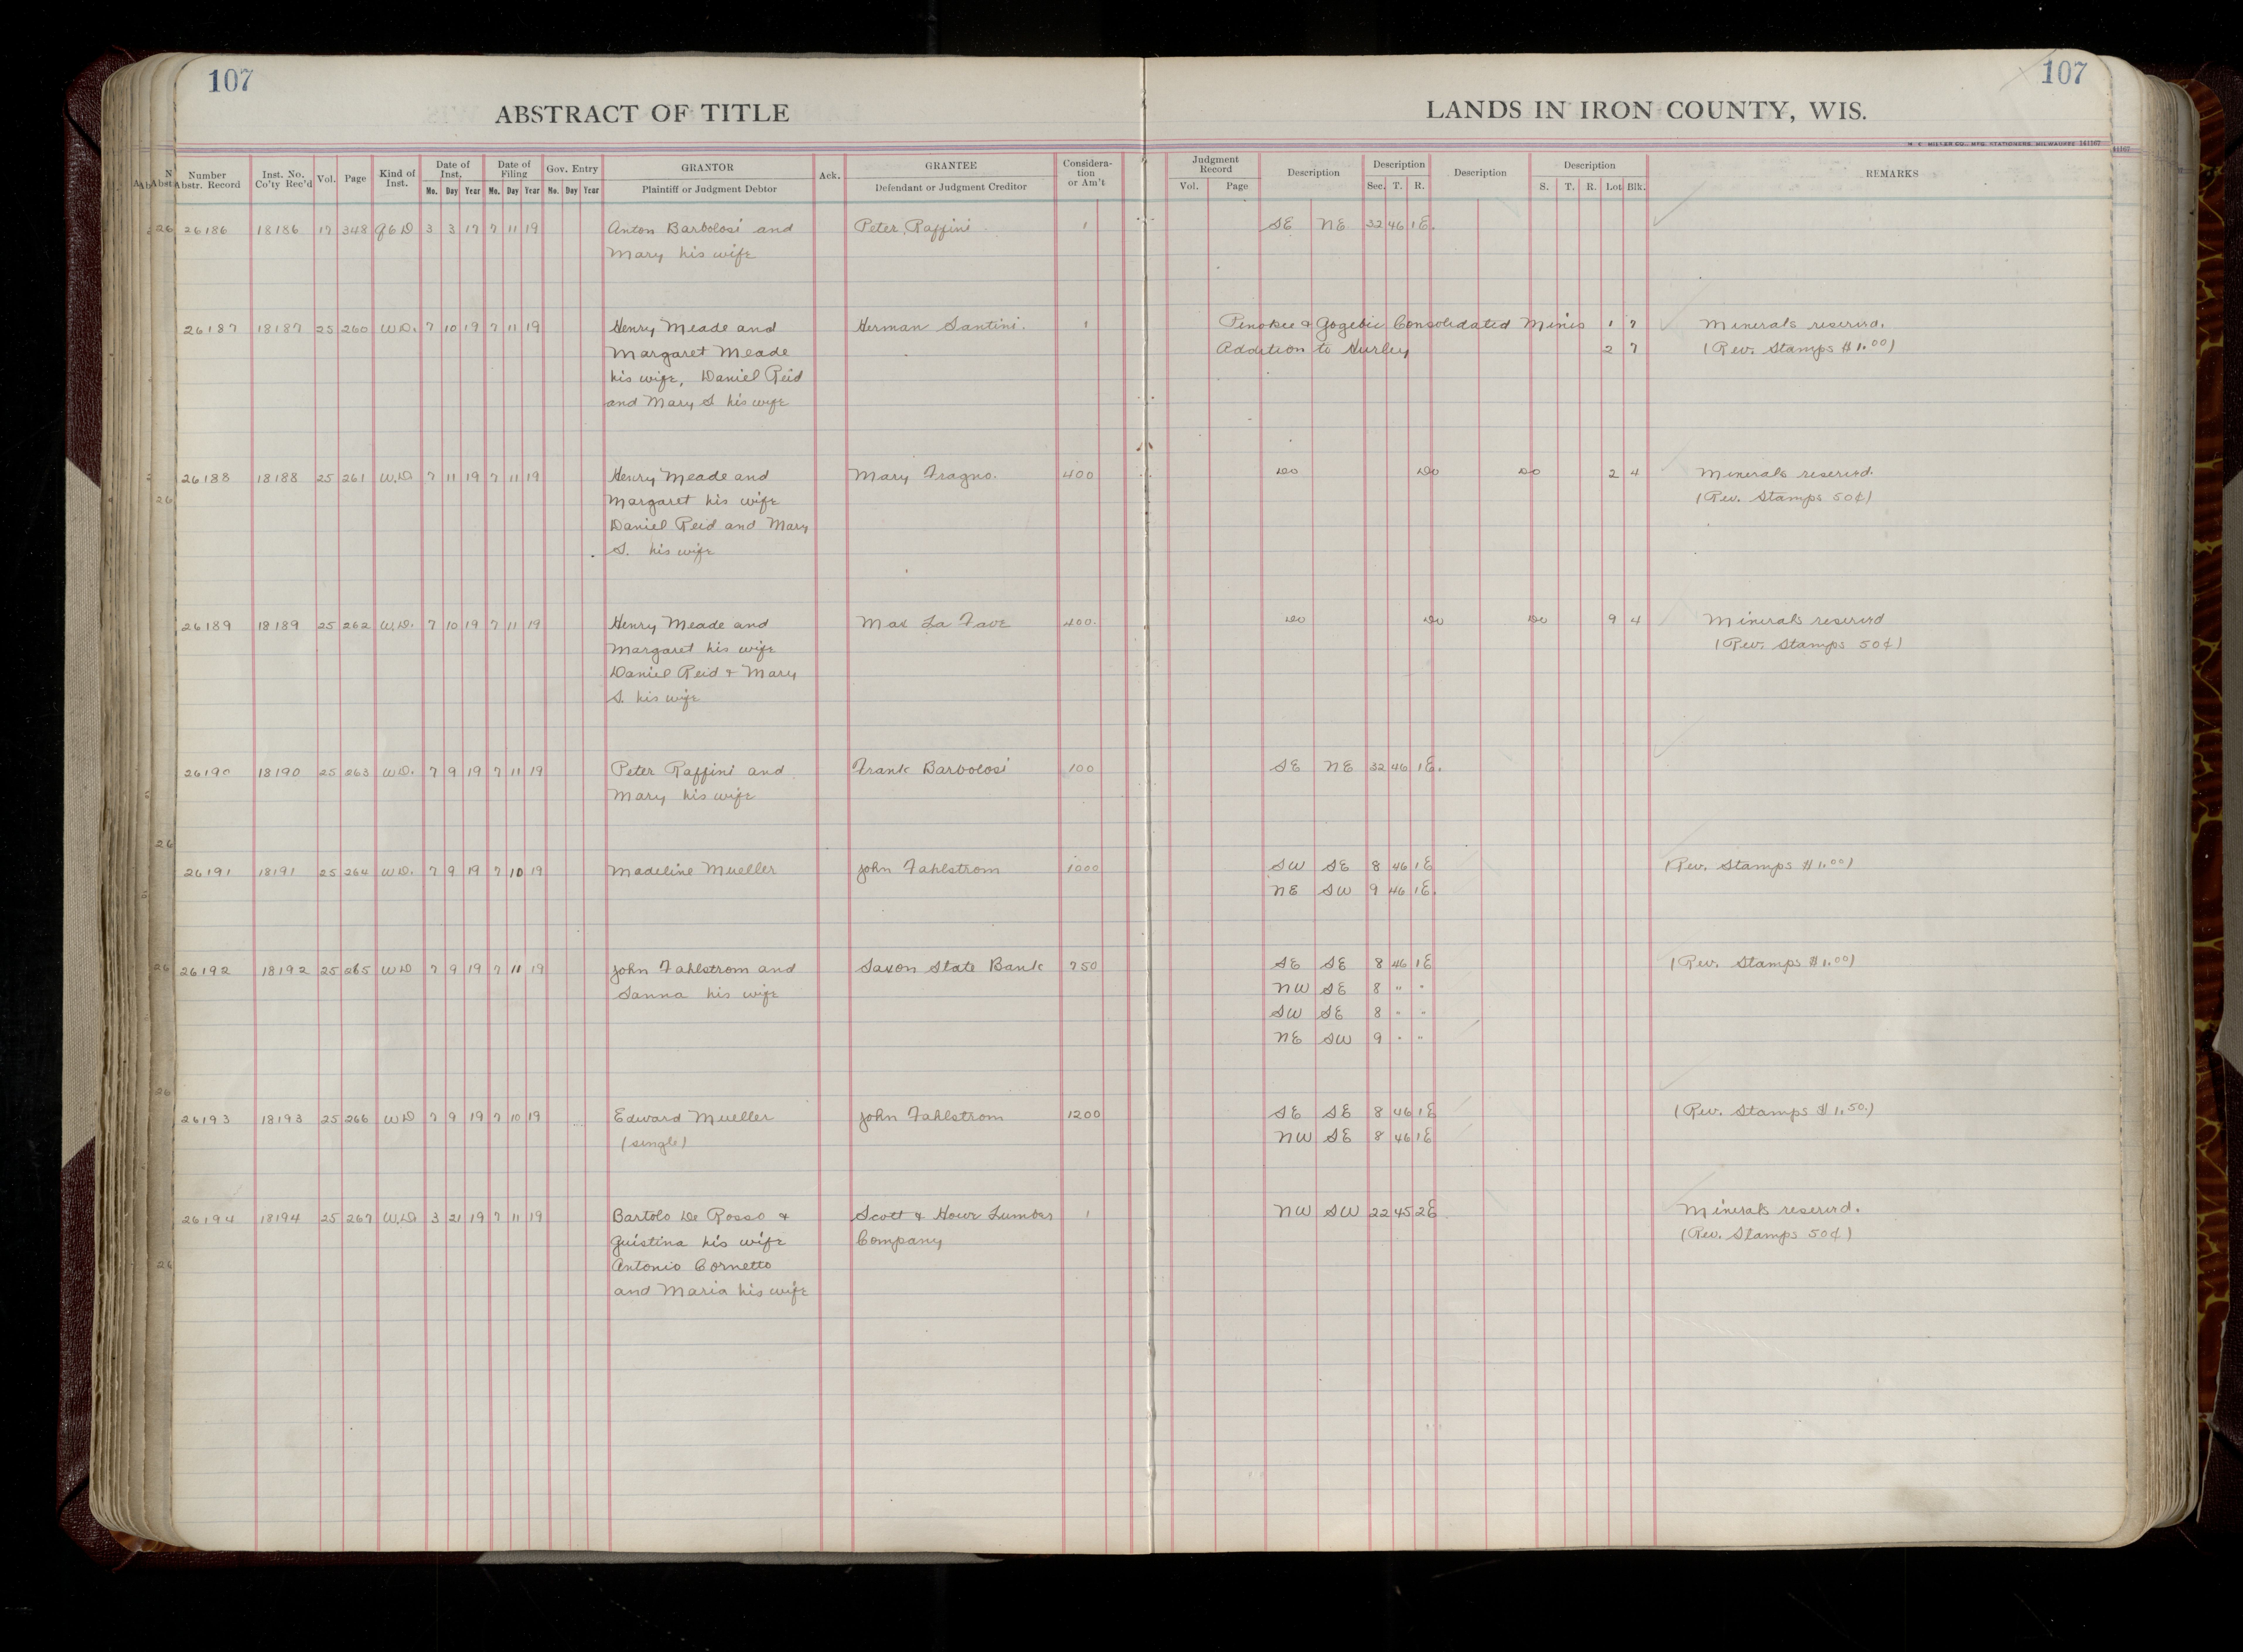 107
107
ABSTRACT OF TITLE
LANDS IN IRON COUNTY, WIS.
M. C. MILLER CO., MFG. STATIONERS, MILWAUKEE 141167
Number Abstr. Record | Inst. No. Co'ty Rec'd | Vol. | Page | Kind of Inst. | Date of Inst. Mo. Day Year | Date of Filing Mo. Day Year | Gov. Entry Mo. Day Year | GRANTOR Plaintiff or Judgment Debtor | Ack. | GRANTEE Defendant or Judgment Creditor | Considera- tion or Am't | Judgment Record Vol. Page | Description | Description Sec. T. R. | Description | Description S. T. R. Lot Blk. | REMARKS
26186 18186 17 348 QCD 3 3 17 7 11 19 Anton Barbolosi and Peter Raffini 1 SE NE 32 46 1E.
Mary his wife
26187 18187 25 260 W.D. 7 10 19 7 11 19 Henry Meade and Herman Santini. 1 Penokee & Gogebic Consolidated Mines 1 7 Minerals reserved.
Margaret Meade Addition to Hurley 2 7 (Rev. Stamps $1.00)
his wife, Daniel Reid
and Mary S his wife
26188 18188 25 261 W.D. 7 11 19 7 11 19 Henry Meade and Mary Fragno. 400 Do Do Do 2 4 Minerals reserved.
Margaret his wife (Rev. Stamps 50¢)
Daniel Reid and Mary
S. his wife
26189 18189 25 262 W.D. 7 10 19 7 11 19 Henry Meade and Max La Fave 400. Do Do Do 9 4 Minerals reserved
Margaret his wife (Rev. Stamps 50¢)
Daniel Reid & Mary
S. his wife
26190 18190 25 263 W.D. 7 9 19 7 11 19 Peter Raffini and Frank Barbolosi 100 SE NE 32 46 1E.
Mary his wife
26191 18191 25 264 W.D. 7 9 19 7 10 19 Madeline Mueller John Fahlstrom 1000 SW SE 8 46 1E (Rev. Stamps $1.00)
NE SW 9 46 1E.
26192 18192 25 265 WD 7 9 19 7 11 19 John Fahlstrom and Saxon State Bank 750 SE SE 8 46 1E (Rev. Stamps $1.00)
Sanna his wife NW SE 8 " "
SW SE 8 " "
NE SW 9 " "
26193 18193 25 266 WD 7 9 19 7 10 19 Edward Mueller John Fahlstrom 1200 SE SE 8 46 1E (Rev. Stamps $1.50.)
(single) NW SE 8 46 1E
26194 18194 25 267 W.D. 3 21 19 7 11 19 Bartolo De Rosso & Scott & Howe Lumber 1 NW SW 22 45 2E Minerals reserved.
Guistina his wife Company (Rev. Stamps 50¢)
Antonio Cornetto
and Maria his wife